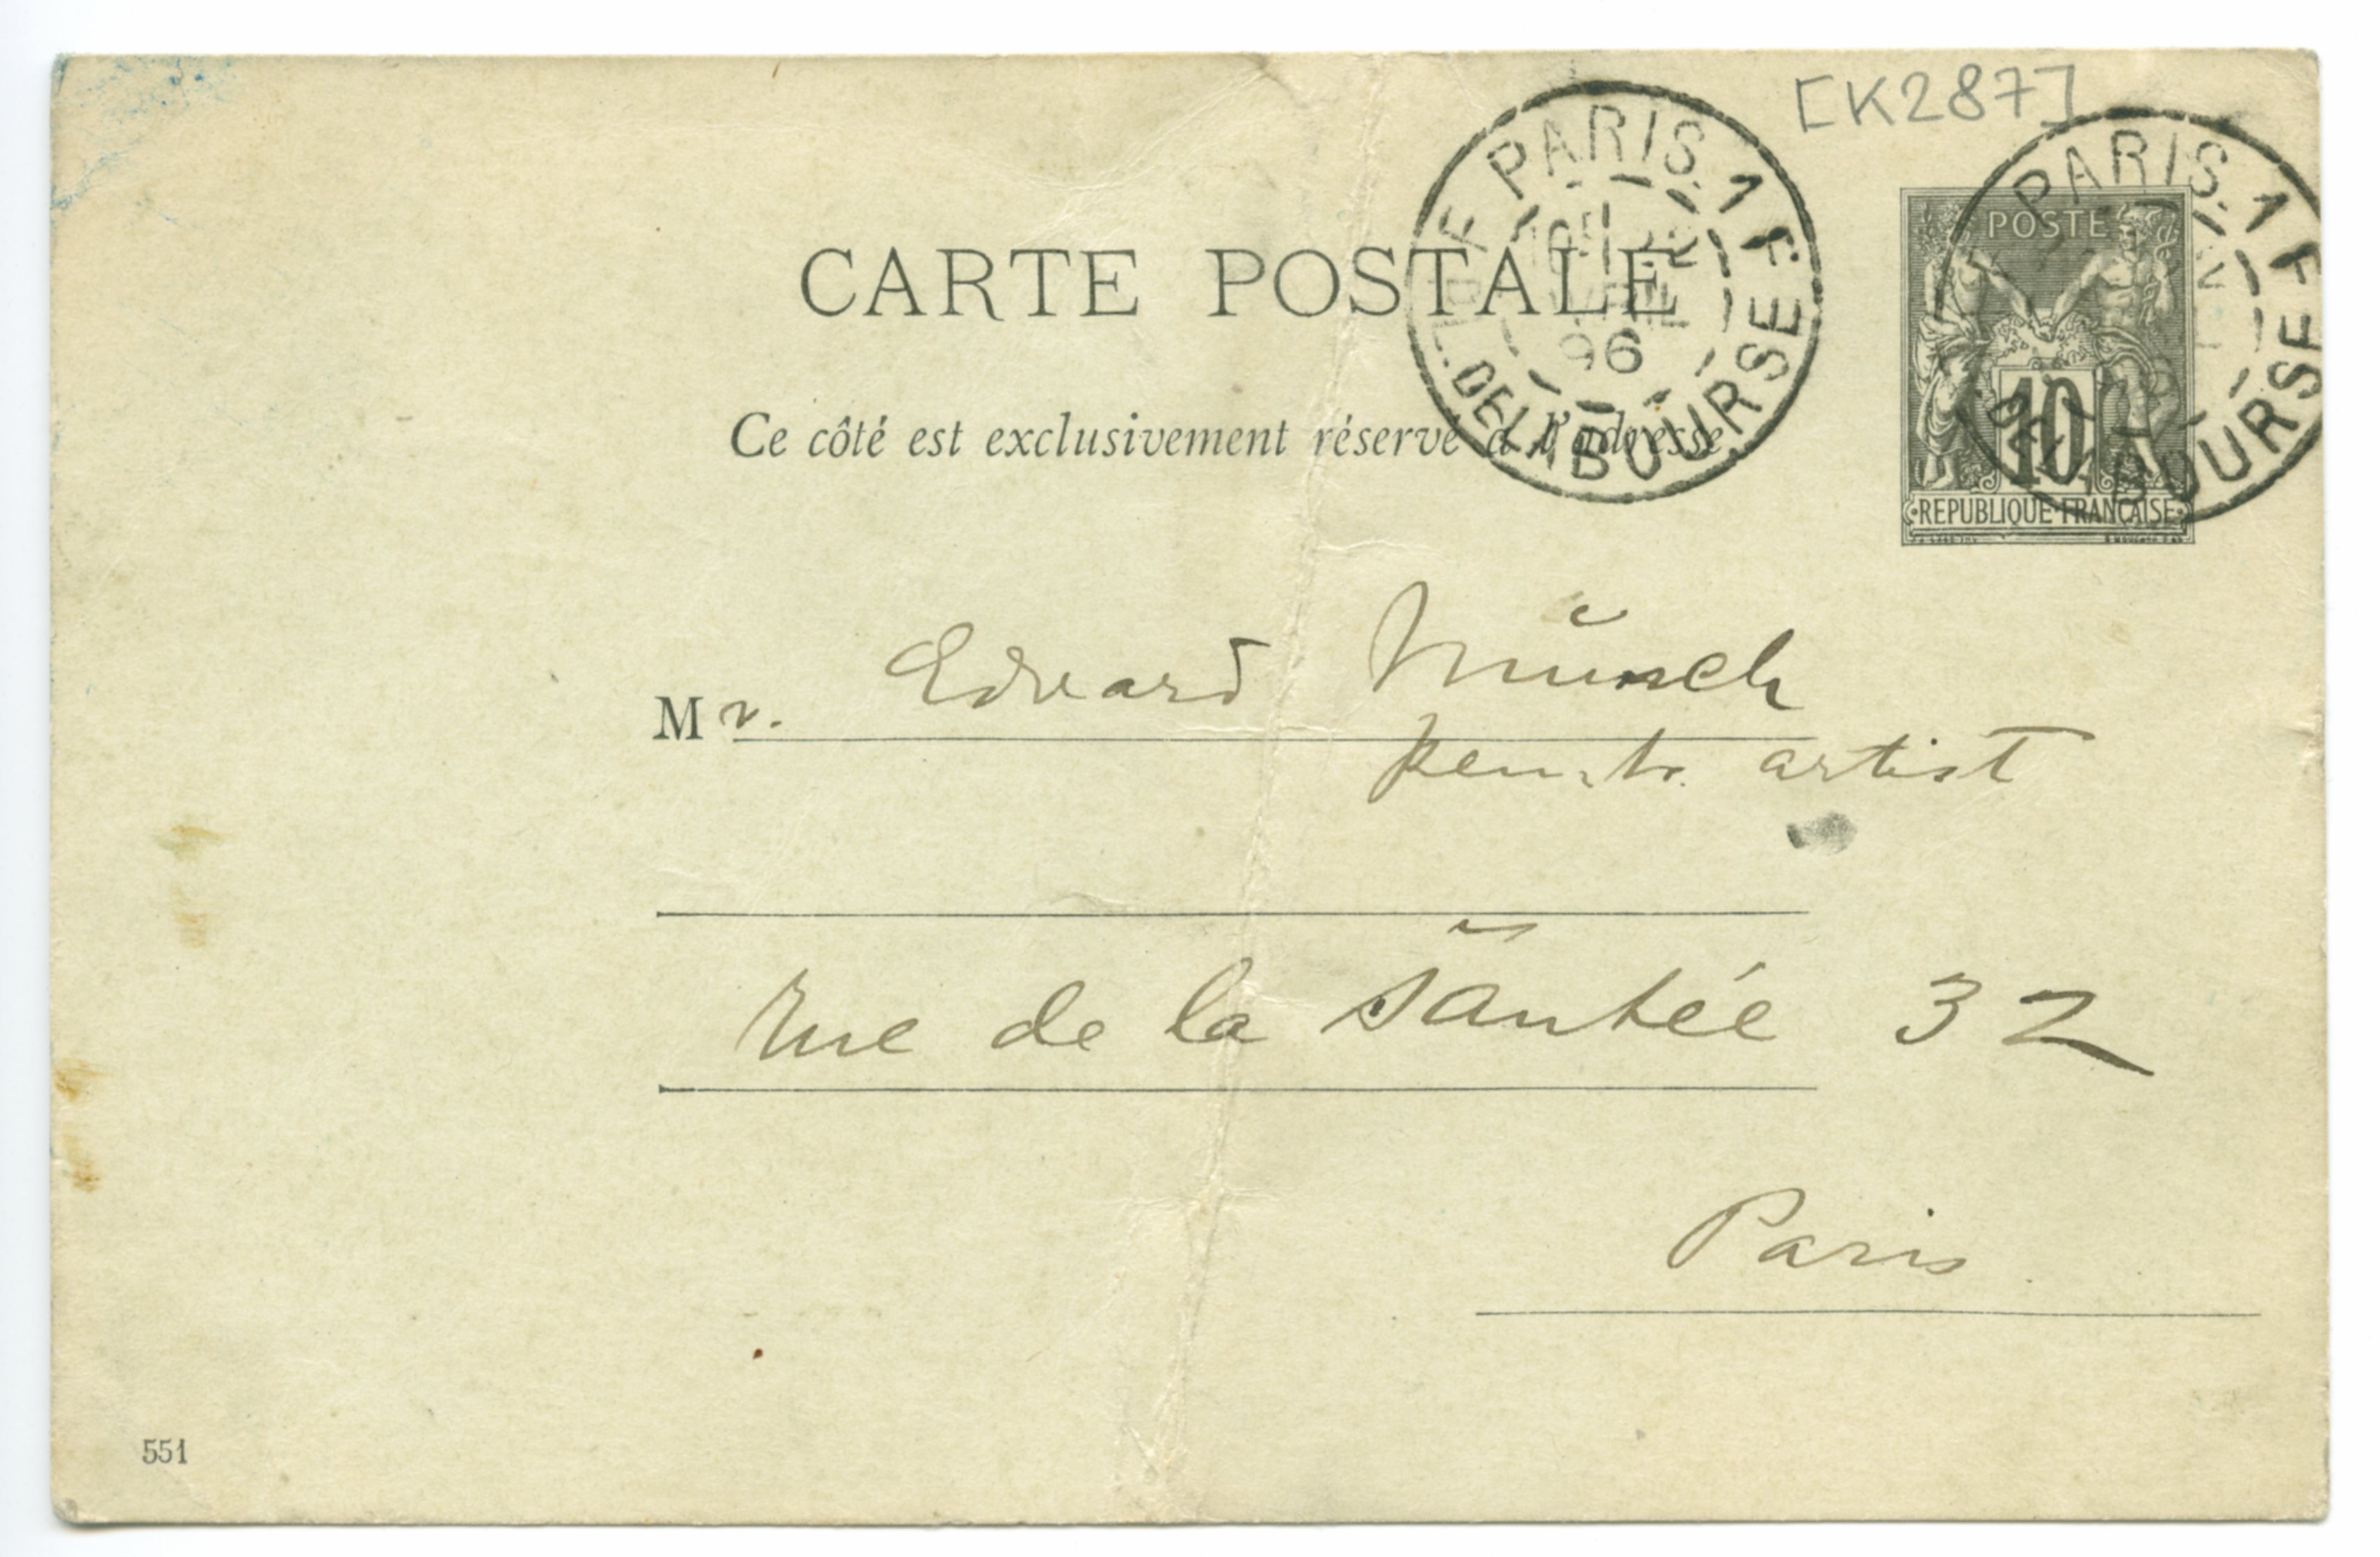 [K287]
PARIS. 1
DE LA BOURSE
96
PARIS. 1
BOURSE
POSTE
10
REPUBLIQUE FRANÇAISE
CARTE POSTALE
Ce côté est exclusivement réservé à l'adresse
Mr. Edvard Münsch
artist
Rue de la Santée 32
Paris
551